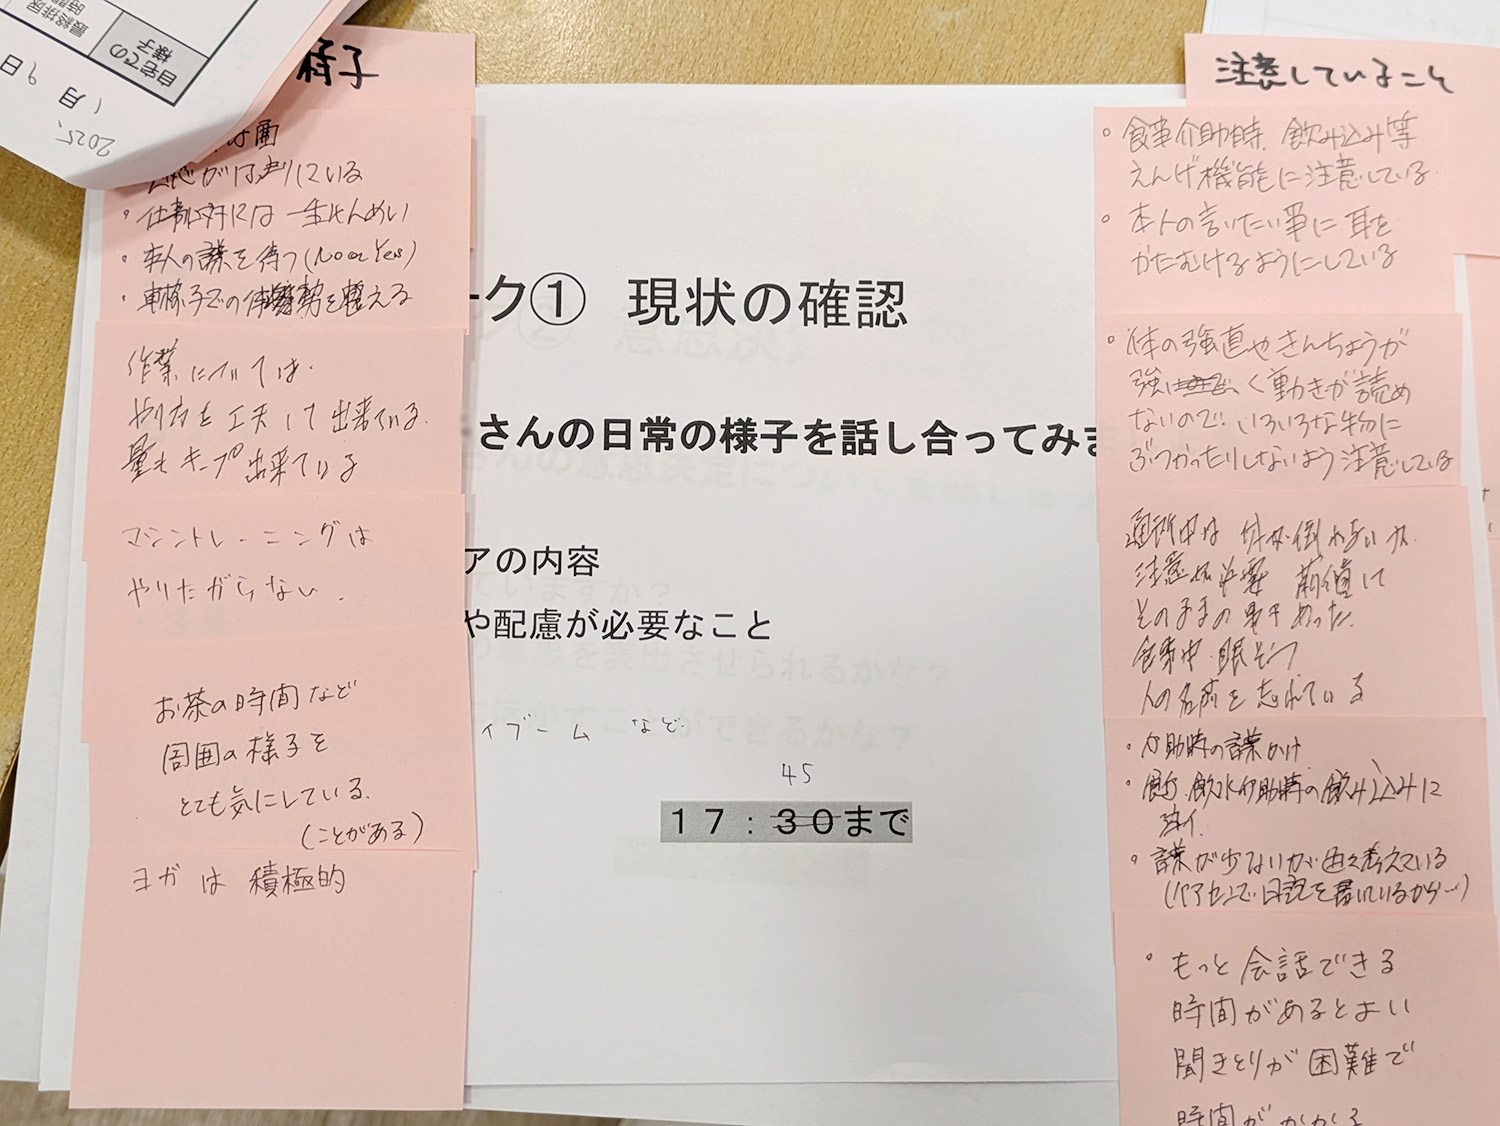 自宅での
様子
最終排尿
時間
2025,
1月9日
様子
は画
している
・仕事に対しては一生けんめい
・本人の言葉を待つ(No or Yes)
・車椅子での体勢を整える
作業については
やり方を工夫して出来ている.
量もキープ出来ている
マシントレーニングは
やりたがらない.
お茶の時間など
周囲の様子を
とても気にしている.
(ことがある)
ヨガは積極的
ーク① 現状の確認
さんの日常の様子を話し合ってみま
アの内容
や配慮が必要なこと
ィブーム など
45
17:30まで
注意していること
・食事介助時、飲み込み等
えんげ機能に注意している.
・本人の言いたい事に耳を
かたむけるようにしている
・体の強直やきんちょうが
強く動きが読め
ないので、いろいろな物に
ぶつかったりしないよう注意している
通所中は 体が倒れないか
注意が必要 前傾に
そのままの事もあった.
食事中・眠そう
人の名前を忘れている
・介助時の言葉かけ
・飲水介助時の飲み込みに
注イ.
・言葉が少ないが色々考えている
(パソコンで日記を書いているから…)
・もっと会話できる
時間があるとよい
聞きとりが困難で
時間がかかる